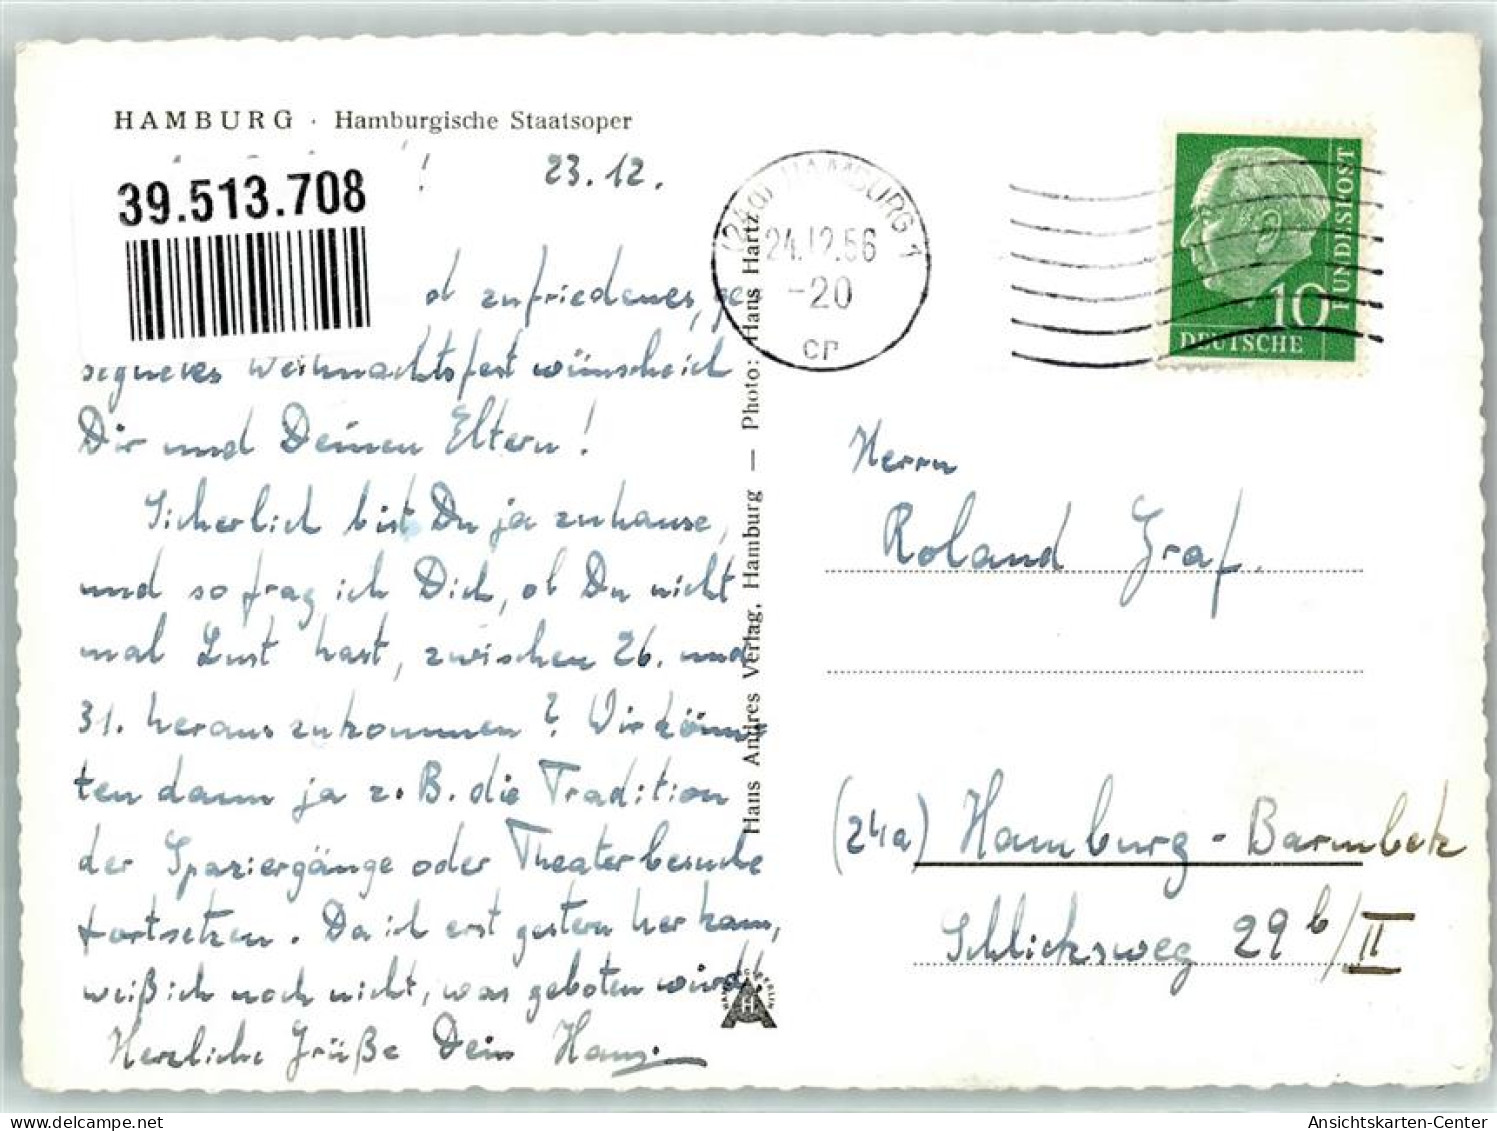 HAMBURG · Hamburgische Staatsoper
23.12.
39.513.708
zufriedenes, ge
segnetes Weihnachtsfest wünsche ich
Dir und Deinen Eltern!
Sicherlich bist Du ja zuhause,
und so frag ich Dich, ob Du nicht
mal Lust hast, zwischen 26. und
31. herauszukommen? Wir könn-
ten dann ja z. B. die Tradition
der Spaziergänge oder Theaterbesuche
fortsetzen. Da ich erst gestern herkam,
weiß ich noch nicht, was geboten wird!
Herzliche Grüße Dein Hans.
Hans Andres Verlag, Hamburg — Photo: Hans Hartz
(24a) HAMBURG 1
24.12.56
-20
cr
DEUTSCHE
BUNDESPOST
10
Herrn
Roland Graf.
(24a) Hamburg-Barmbek
Schlicksweg 29b/II
Ansichtskarten-Center